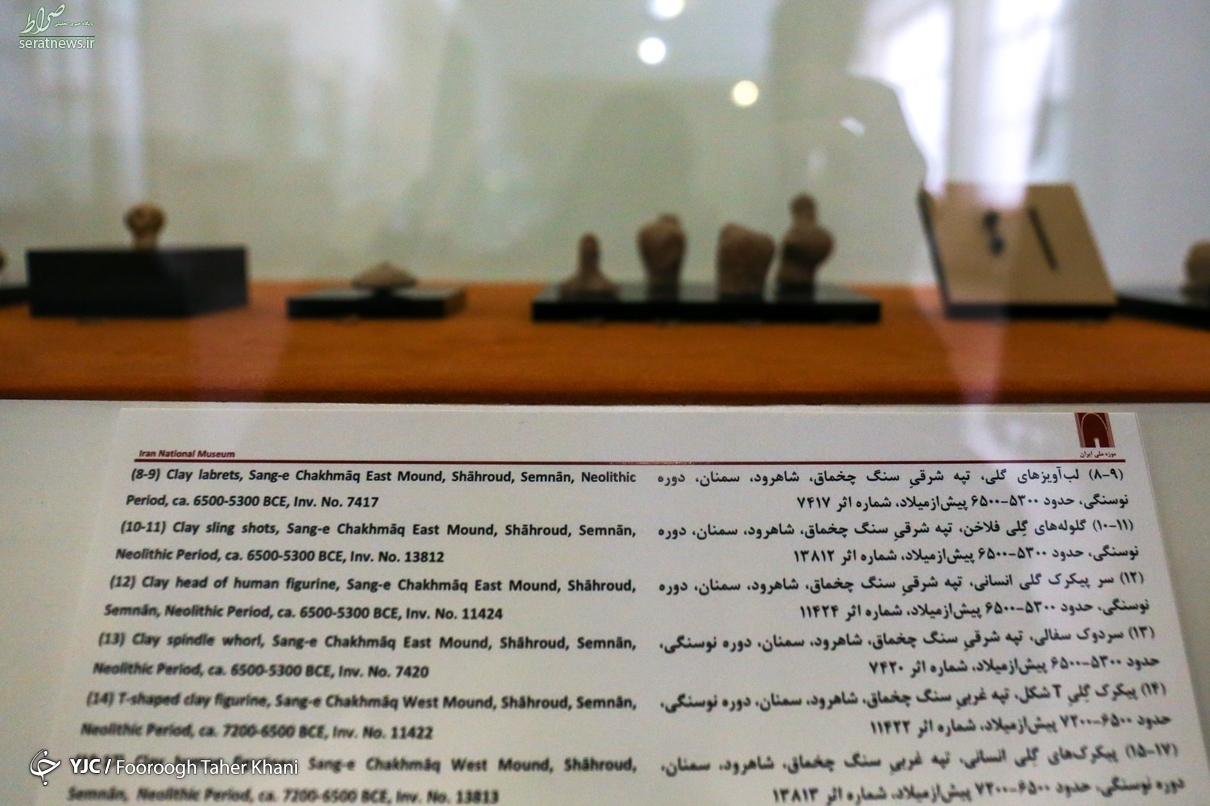 صراط
seratnews.ir
Iran National Museum
موزه ملی ایران
(8-9) Clay labrets, Sang-e Chakhmāq East Mound, Shāhroud, Semnān, Neolithic
Period, ca. 6500-5300 BCE, Inv. No. 7417
(10-11) Clay sling shots, Sang-e Chakhmāq East Mound, Shāhroud, Semnān,
Neolithic Period, ca. 6500-5300 BCE, Inv. No. 13812
(12) Clay head of human figurine, Sang-e Chakhmāq East Mound, Shāhroud,
Semnān, Neolithic Period, ca. 6500-5300 BCE, Inv. No. 11424
(13) Clay spindle whorl, Sang-e Chakhmāq East Mound, Shāhroud, Semnān,
Neolithic Period, ca. 6500-5300 BCE, Inv. No. 7420
(14) T-shaped clay figurine, Sang-e Chakhmāq West Mound, Shāhroud, Semnān,
Neolithic Period, ca. 7200-6500 BCE, Inv. No. 11422
Sang-e Chakhmāq West Mound, Shāhroud,
Semnān, Neolithic Period, ca. 7200-6500 BCE, Inv. No. 13813
(۸-۹) لب‌آویزهای گلی، تپه شرقیِ سنگ چخماق، شاهرود، سمنان، دوره
نوسنگی، حدود ۵۳۰۰-۶۵۰۰ پیش‌ازمیلاد، شماره اثر ۷۴۱۷
(۱۰-۱۱) گلوله‌های گِلی فلاخن، تپه شرقیِ سنگ چخماق، شاهرود، سمنان، دوره
نوسنگی، حدود ۵۳۰۰-۶۵۰۰ پیش‌ازمیلاد، شماره اثر ۱۳۸۱۲
(۱۲) سر پیکرک گلی انسانی، تپه شرقیِ سنگ چخماق، شاهرود، سمنان، دوره
نوسنگی، حدود ۵۳۰۰-۶۵۰۰ پیش‌ازمیلاد، شماره اثر ۱۱۴۲۴
(۱۳) سردوک سفالی، تپه شرقیِ سنگ چخماق، شاهرود، سمنان، دوره نوسنگی،
حدود ۵۳۰۰-۶۵۰۰ پیش‌ازمیلاد، شماره اثر ۷۴۲۰
(۱۴) پیکرک گِلی T شکل، تپه غربیِ سنگ چخماق، شاهرود، سمنان، دوره نوسنگی،
حدود ۶۵۰۰-۷۲۰۰ پیش‌ازمیلاد، شماره اثر ۱۱۴۲۲
(۱۵-۱۷) پیکرک‌های گِلی انسانی، تپه غربیِ سنگ چخماق، شاهرود، سمنان،
دوره نوسنگی، حدود ۶۵۰۰-۷۲۰۰ پیش‌ازمیلاد، شماره اثر ۱۳۸۱۳
YJC / Fooroogh Taher Khani